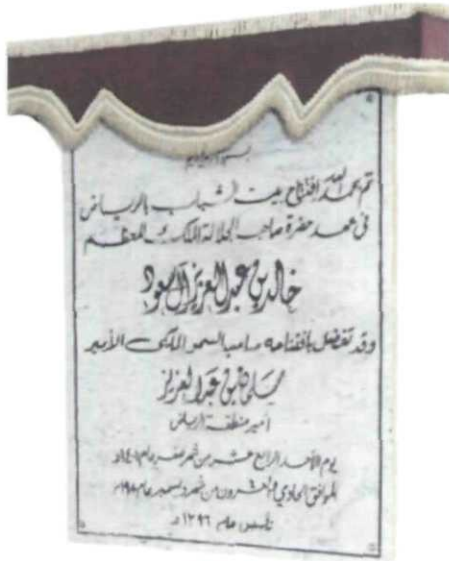 بسم الله الرحمن الرحيم
تم بحمد الله افتتاح بيت الشباب بالرياض
في عهد حضرة صاحب الجلالة الملك المعظم
خالد بن عبد العزيز آل سعود
وقد تفضل بافتتاحه صاحب السمو الملكي الأمير
سلمان بن عبد العزيز
أمير منطقة الرياض
يوم الأحد الرابع عشر من شهر صفر عام ١٤٠١هـ
الموافق الحادي والعشرون من شهر ديسمبر عام ١٩٨٠م
تأسس عام ١٣٩٦هـ